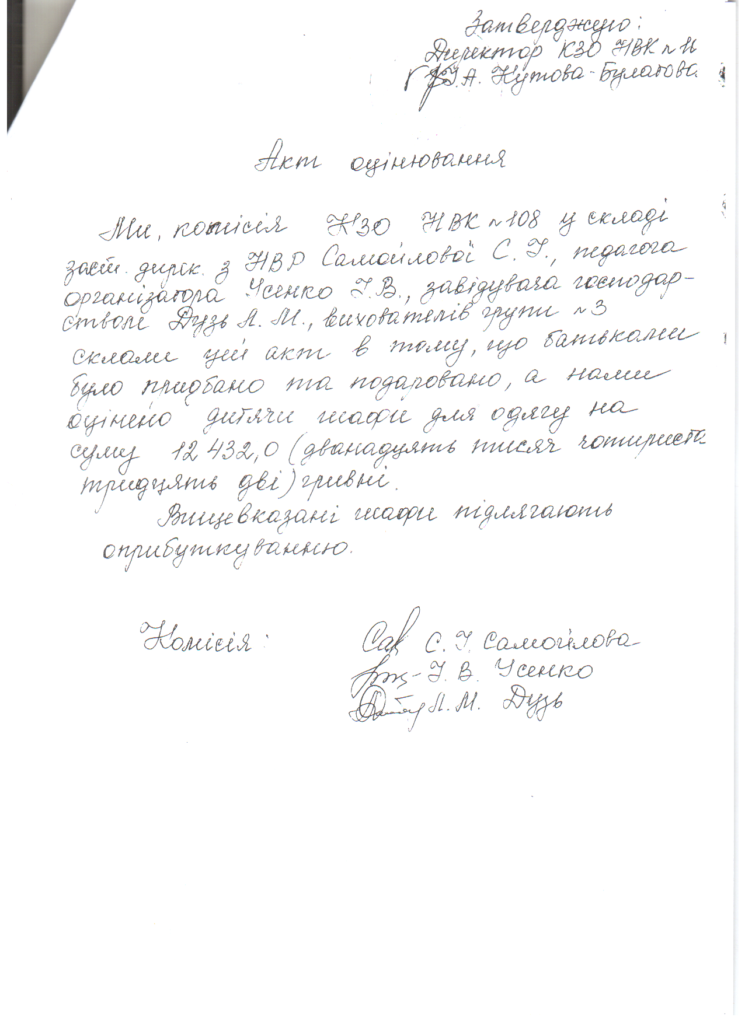 Затверджую:
Директор КЗО НВК №11
І. А. Кутова-Булатова.
Акт оцінювання
Ми, комісія КЗО НВК №108 у складі
заст. дирек. з НВР Самойлової С. І., педагога
організатора Усенко І. В., завідувача господар-
ством Дузь Л. М., вихователів групи №3
склали цей акт в тому, що батьками
було придбано та подаровано, а нами
оцінено дитячи шафи для одягу на
суму 12 432,0 (дванадцять тисяч чотириста
тридцять дві) гривні.
Вищевказані шафи підлягають
оприбуткуванню.
Комісія:
С. І. Самойлова
І. В. Усенко
Л. М. Дузь